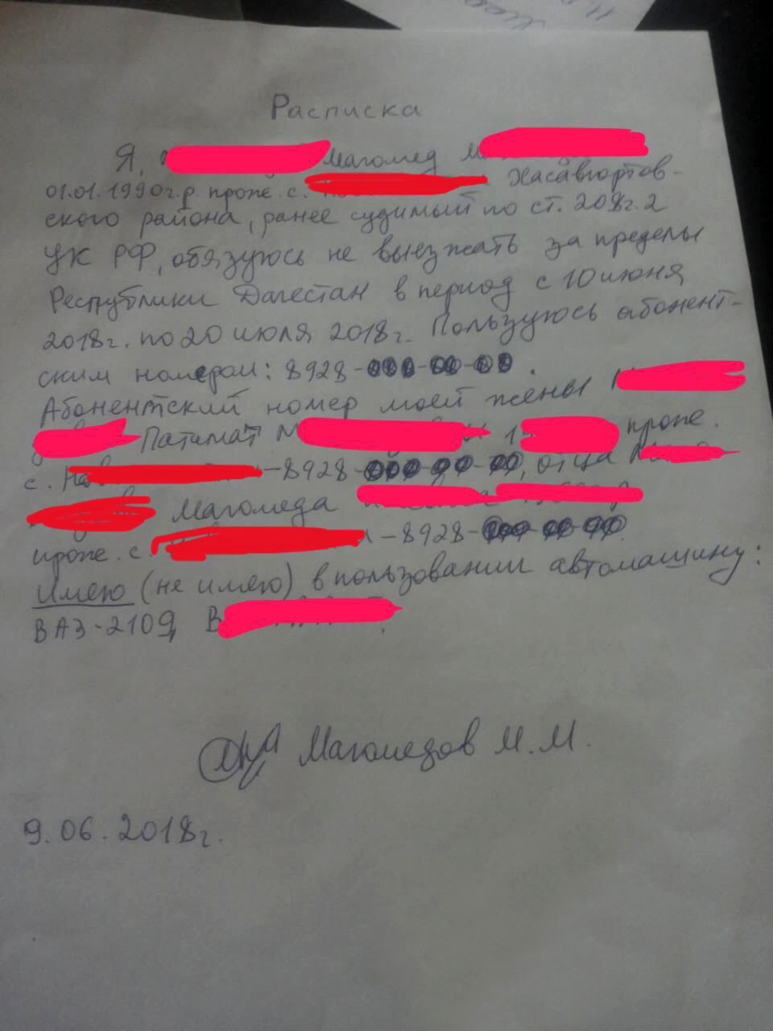 Расписка
Я, Магомед М
01.01.1990г.р прож. с. Хасавюртов-
ского района, ранее судимый по ст. 208г.2
УК РФ, обязуюсь не выезжать за пределы
Республики Дагестан в период с 10 июня
2018г. по 20 июля 2018г. Пользуюсь абонент-
ским номером: 8928-
Абонентский номер моей жены
Патимат М прож.
с. -8928- , отца
Магомеда
прож. с. -8928-
Имею (не имею) в пользовании автомашину:
ВАЗ-2109, В
Магомедов М.М.
9.06.2018г.